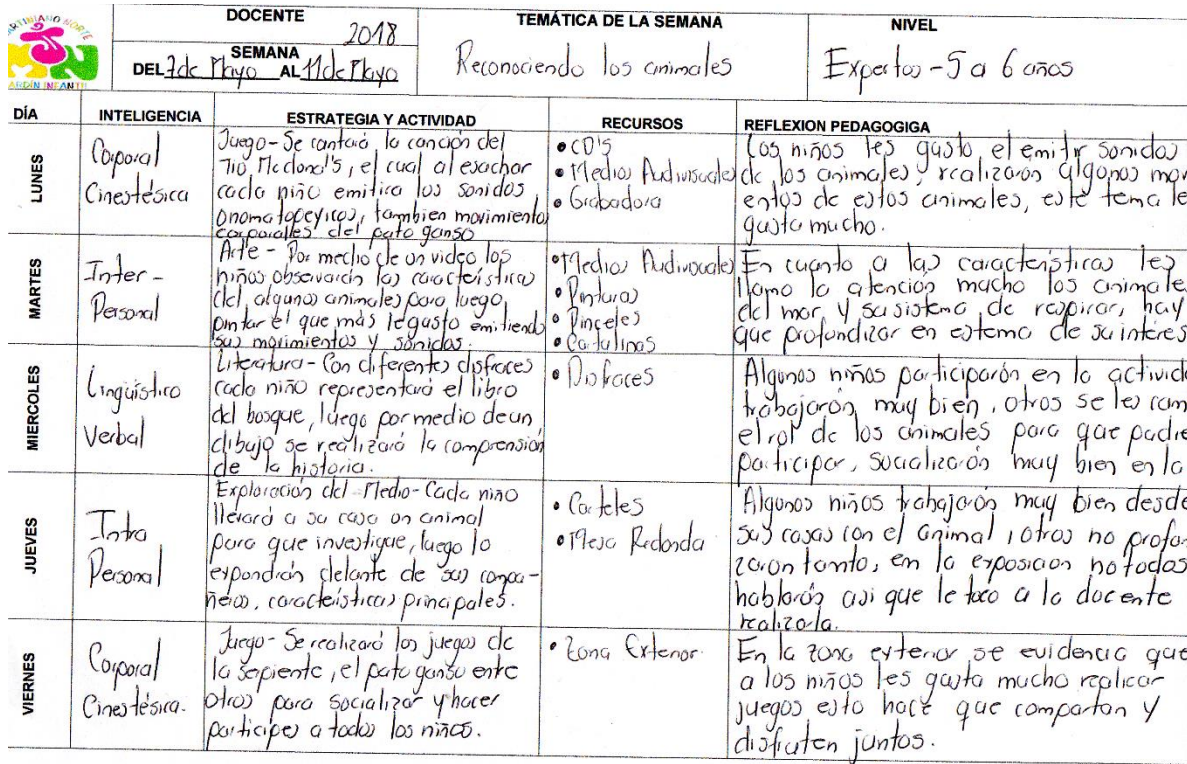 MARTINIANO NORTE
JARDÍN INFANTIL
DOCENTE
2018
SEMANA
DEL 7 de Mayo AL 11 de Mayo
TEMÁTICA DE LA SEMANA
Reconociendo los animales
NIVEL
Expertos - 5 a 6 años
DÍA
INTELIGENCIA
ESTRATEGIA Y ACTIVIDAD
RECURSOS
REFLEXION PEDAGOGIGA
LUNES
Corporal
Cinestésica
Juego - Se cantará la canción del
Tio Mcdonal's, el cual al escuchar
cada niño emitira los sonidos
onomatopeyicos, tambien movimiento
corporales del pato ganso
• CD'S
• Medios Audivisuales
• Grabadora
Los niños les gusto el emitir sonidos
de los animales, realizarón algunos mov
entos de estos animales, este tema le
gusta mucho.
MARTES
Inter -
Personal
Arte - Por medio de un video los
niños observarán las características
del algunos animales para luego
pintar el que más le gusto emitiendo
sus movimientos y sonidos.
• Medios Audivisuales
• Pinturas
• Pinceles
• Cartulinas
En cuanto a las características les
llamo la atención mucho los animale
del mar y su sistema de respirar, hay
que profundizar en es tema de su interés
MIERCOLES
Lingüístico
Verbal
Literatura - Con diferentes disfraces
cada niño representará el libro
del bosque, luego por medio de un
dibujo se realizará la comprensión
de la historia.
• Disfraces
Algunos niños participarón en la activida
trabajarón muy bien, otros se les cam
el rol de los animales para que pudie
participar, socializarón muy bien en la
JUEVES
Intra
Personal
Exploración del Medio - Cada niño
llevará a su casa un animal
para que investigue, luego lo
expondrán delante de sus compa-
ñeros, características principales.
• Carteles
• Mesa Redonda
Algunos niños trabajarón muy bien desde
sus casas con el animal, otros no profun
zaron tanto, en la exposicion no todos
hablarón asi que le toco a la docente
realizarla.
VIERNES
Corporal
Cinestésica.
Juego - Se realizará los juegos de
la sepiente, el pato ganso ente
otros para socializar y hacer
participes a todos los niños.
• Zona Exterior.
En la zona exterior se evidencia que
a los niños les gusta mucho replicar
juegos esto hace que compartan y
disfruten juntos.